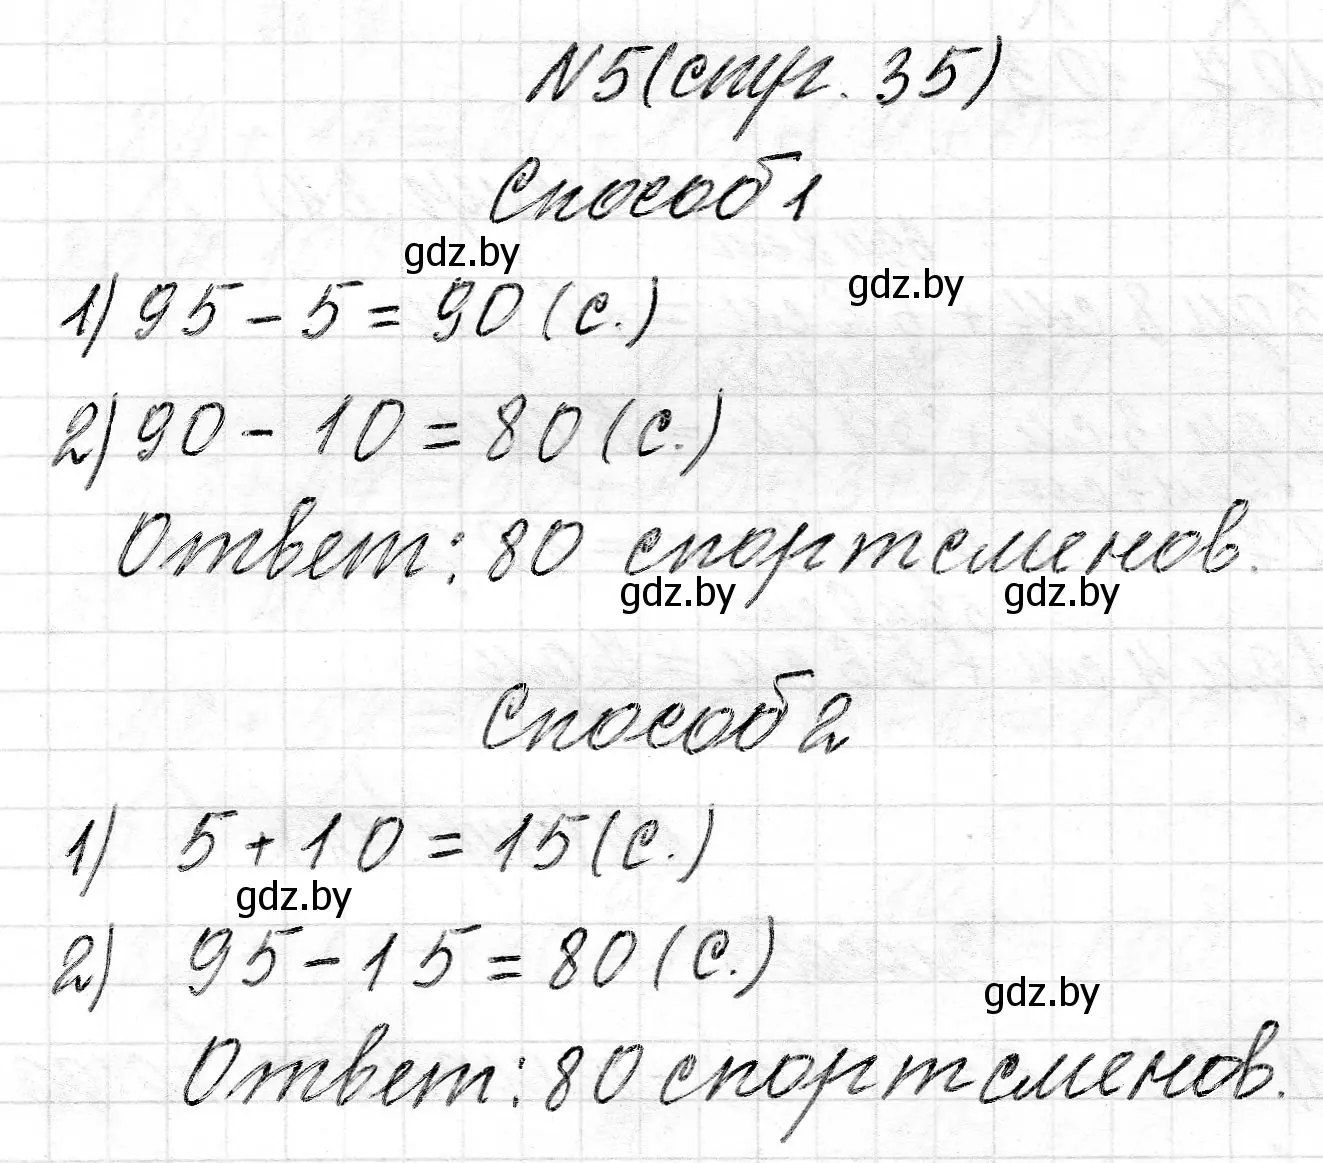 N5(стр. 35)
Способ 1
gdz.by
gdz.by
1) 95 - 5 = 90 (с.)
2) 90 - 10 = 80 (с.)
Ответ: 80 спортсменов.
gdz.by gdz.by
Способ 2
1) 5 + 10 = 15 (с.)
gdz.by
2) 95 - 15 = 80 (с.)
gdz.by
Ответ: 80 спортсменов.